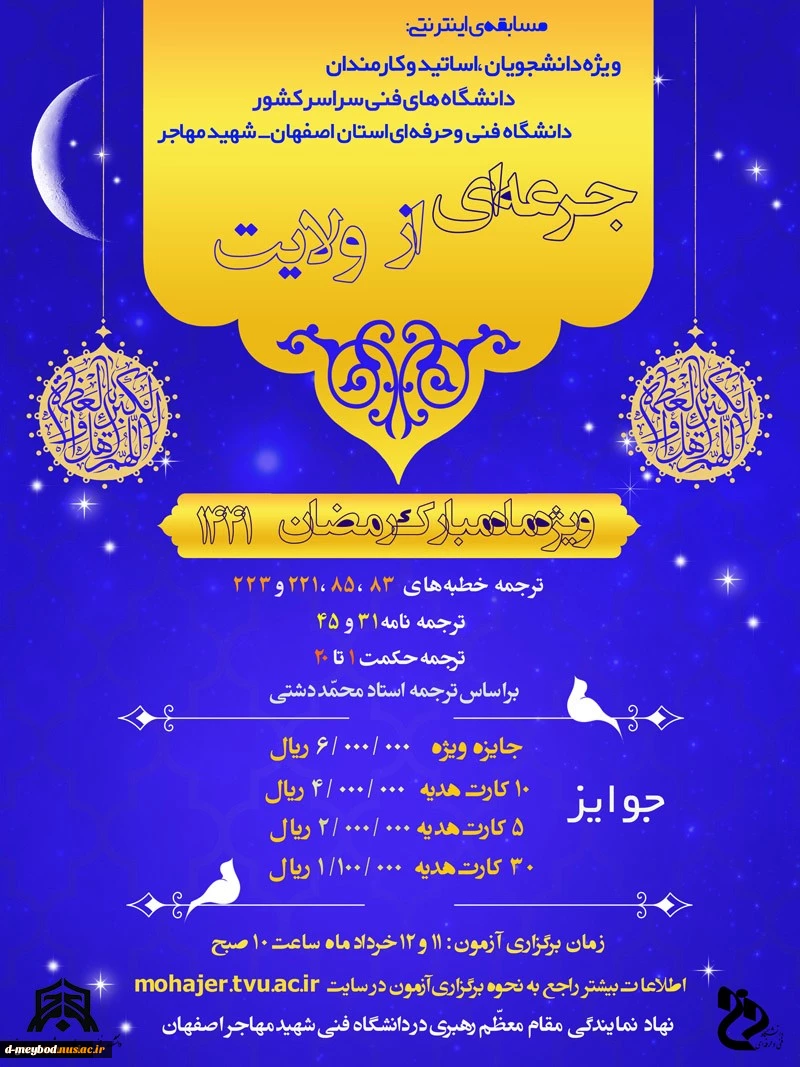 مسابقه‌ی اینترنتی:
ویژه دانشجویان ،اساتید و کارمندان
دانشگاه های فنی سراسر کشور
دانشگاه فنی و حرفه‌ای استان اصفهان_ شهید مهاجر
جرعه‌ای از ولایت
اللهم اهل الکبریاء والعظمة
اللهم اهل الکبریاء والعظمة
ویژه ماه مبارک رمضان ۱۴۴۱
ترجمه خطبه‌های ۸۳ ،۸۵ ،۲۲۱ و ۲۲۳
ترجمه نامه ۳۱ و ۴۵
ترجمه حکمت ۱ تا ۲۰
براساس ترجمه استاد محمّد دشتی
جوایز
جایزه ویژه ۶/۰۰۰/۰۰۰ ریال
۱۰ کارت هدیه ۴/۰۰۰/۰۰۰ ریال
۵ کارت هدیه ۲/۰۰۰/۰۰۰ ریال
۳۰ کارت هدیه ۱/۱۰۰/۰۰۰ ریال
زمان برگزاری آزمون : ۱۱ و ۱۲ خرداد ماه ساعت ۱۰ صبح
اطلاعات بیشتر راجع به نحوه برگزاری آزمون در سایت mohajer.tvu.ac.ir
نهاد نمایندگی مقام معظّم رهبری در دانشگاه فنی شهید مهاجر اصفهان
d-meybod.nus.ac.ir